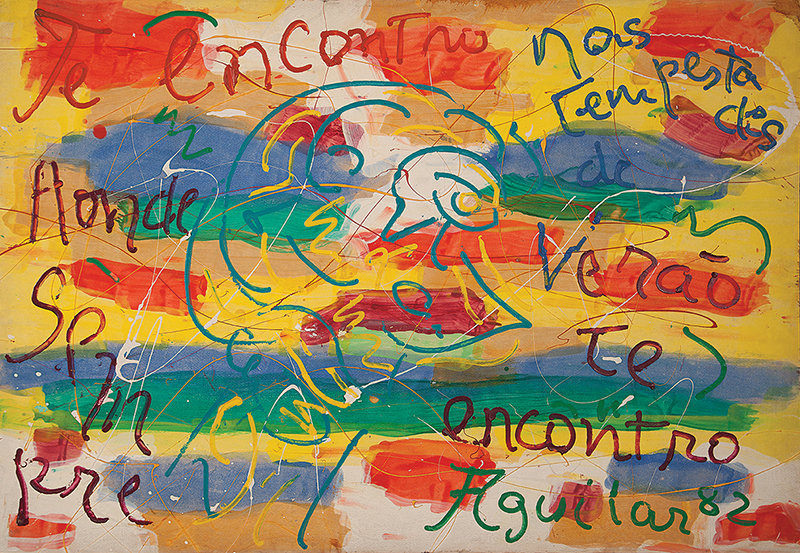 Te encontro nas
tempesta
des
de
verão
Te
encontro
Aonde
Sem
pre
Aguilar 82